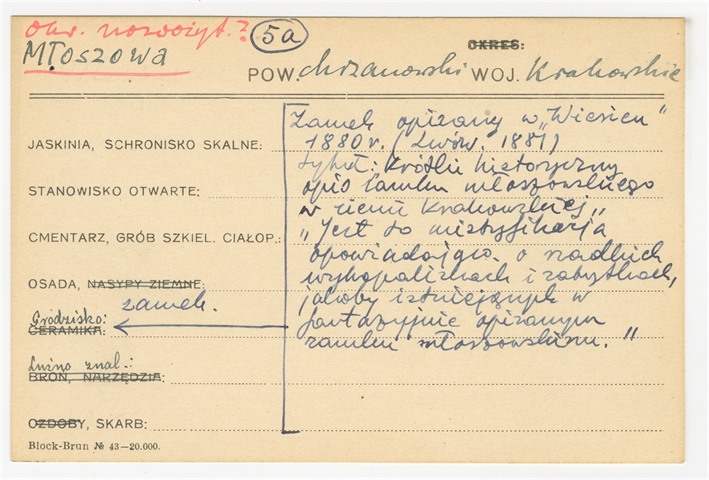 okr. nowożyt.?
Młoszowa
5a
OKRES:
POW. chrzanowski WOJ. Krakowskie
JASKINIA, SCHRONISKO SKALNE:
STANOWISKO OTWARTE:
CMENTARZ, GRÓB SZKIEL. CIAŁOP.:
OSADA, NASYPY ZIEMNE:
zamek.
Grodzisko:
CERAMIKA:
Luźno znal.:
BROŃ, NARZĘDZIA:
OZDOBY, SKARB:
Block-Brun № 43—20.000.
Zamek opisany w „Wieńcu"
1880 r. (Lwów. 1881)
tytuł: Krótki historyczny
opis zamku młoszowskiego
w ziemi Krakowskiej „
„Jest to mistyfikacja
opowiadając. o rzadkich
wykopaliskach i zabytkach,
jakoby istniejących w
fantazyjnie opisanym
zamku młoszowskim."